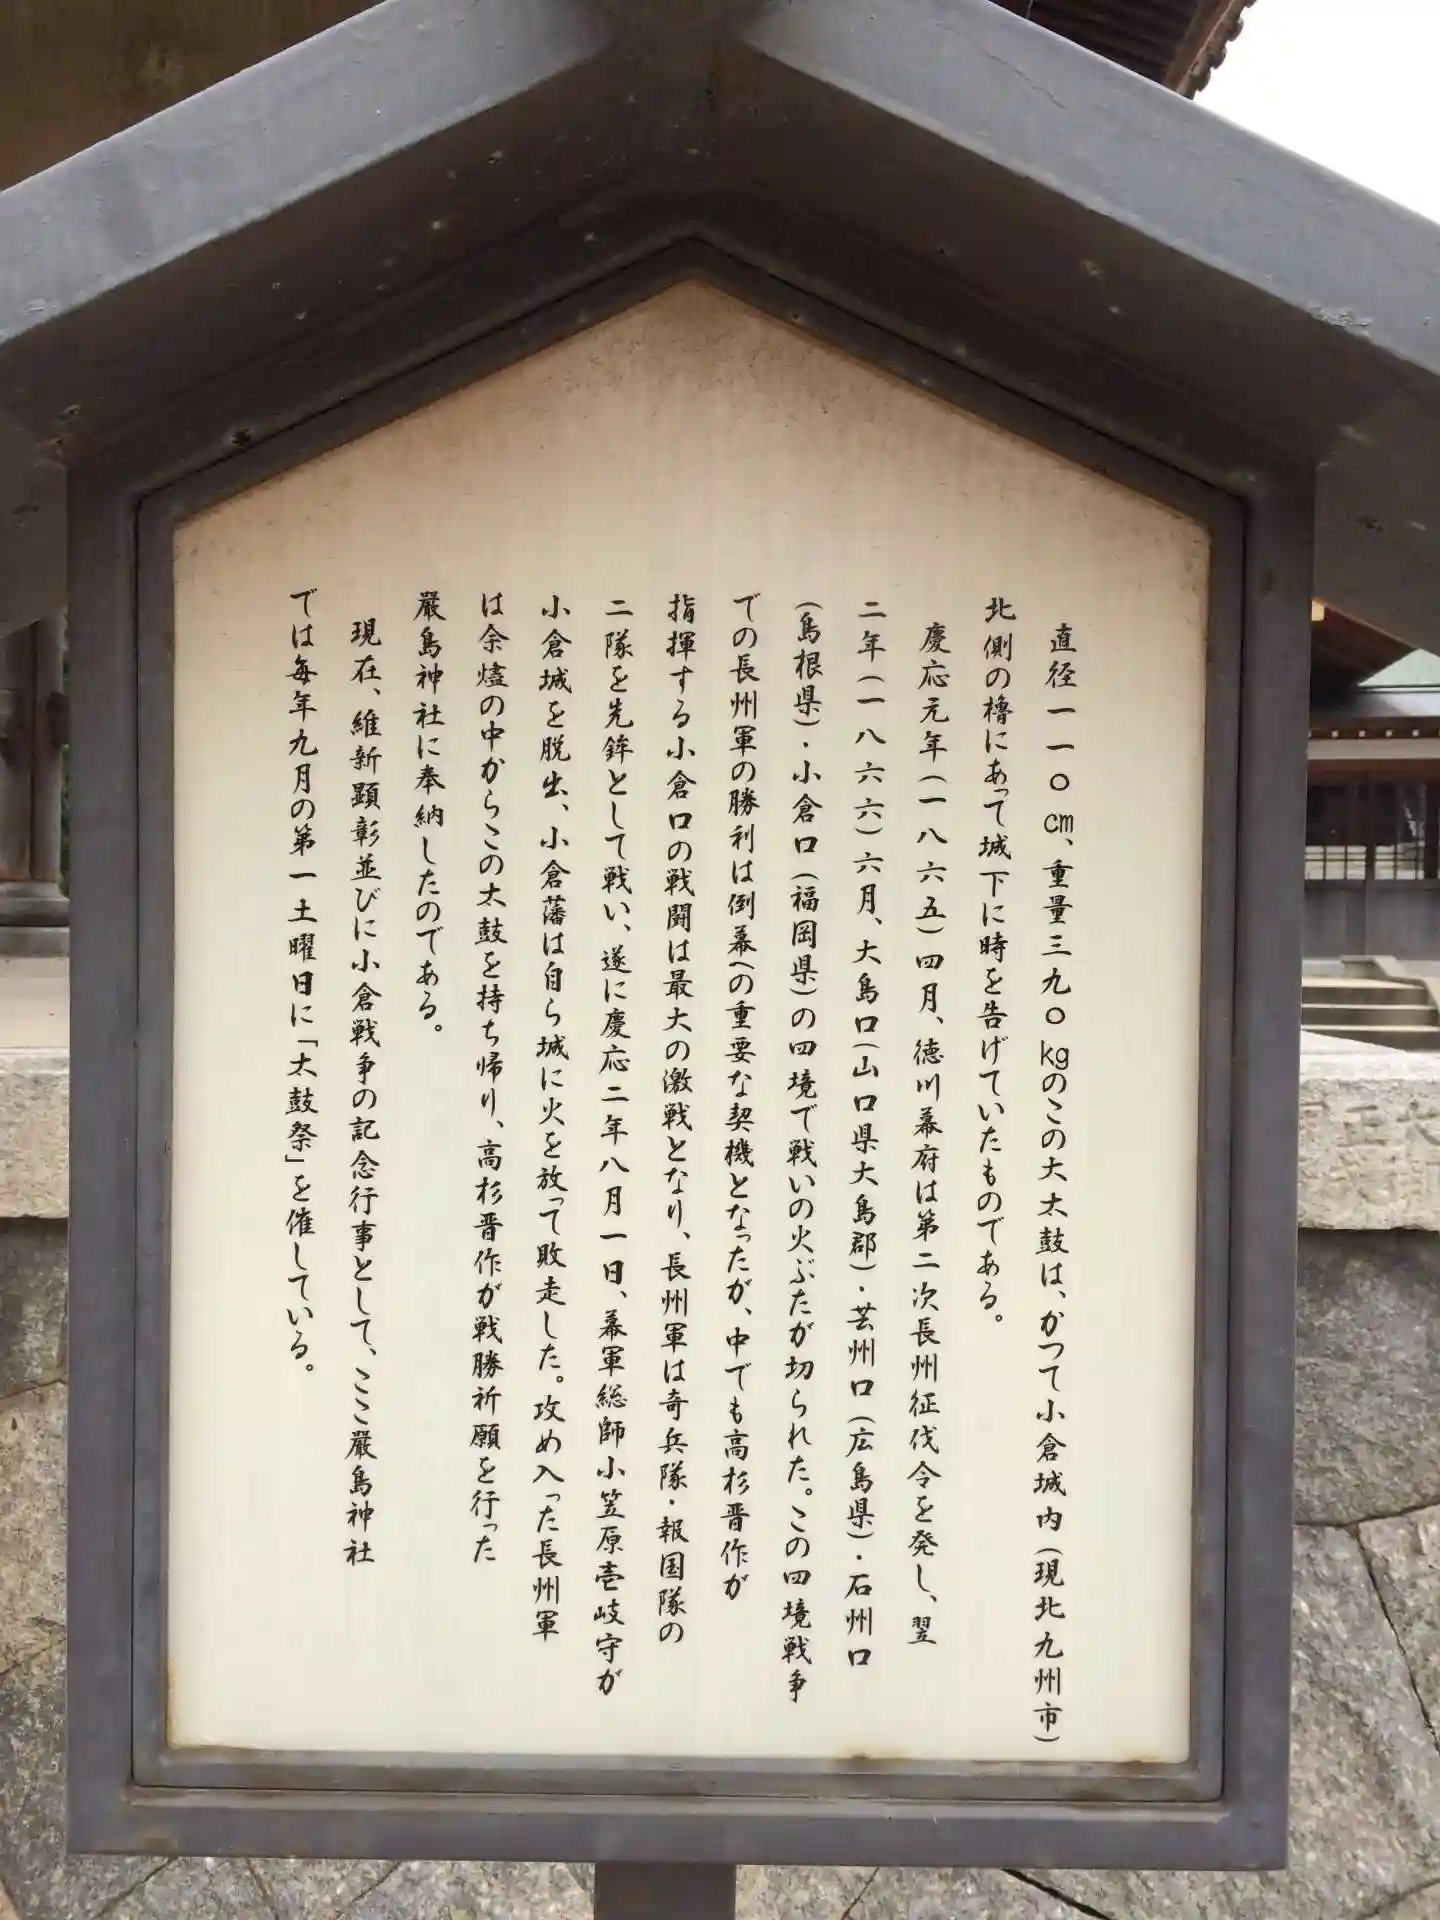 直径一一〇㎝、重量三九〇㎏のこの大太鼓は、かつて小倉城内(現北九州市)
北側の櫓にあって城下に時を告げていたものである。
慶応元年(一八六五)四月、徳川幕府は第二次長州征伐令を発し、翌
二年(一八六六)六月、大島口(山口県大島郡)・芸州口(広島県)・石州口
(島根県)・小倉口(福岡県)の四境で戦いの火ぶたが切られた。この四境戦争
での長州軍の勝利は倒幕への重要な契機となったが、中でも高杉晋作が
指揮する小倉口の戦闘は最大の激戦となり、長州軍は奇兵隊・報国隊の
二隊を先鉾として戦い、遂に慶応二年八月一日、幕軍総師小笠原壱岐守が
小倉城を脱出、小倉藩は自ら城に火を放って敗走した。攻め入った長州軍
は余燼の中からこの太鼓を持ち帰り、高杉晋作が戦勝祈願を行った
厳島神社に奉納したのである。
現在、維新顕彰並びに小倉戦争の記念行事として、ここ厳島神社
では毎年九月の第一土曜日に「太鼓祭」を催している。